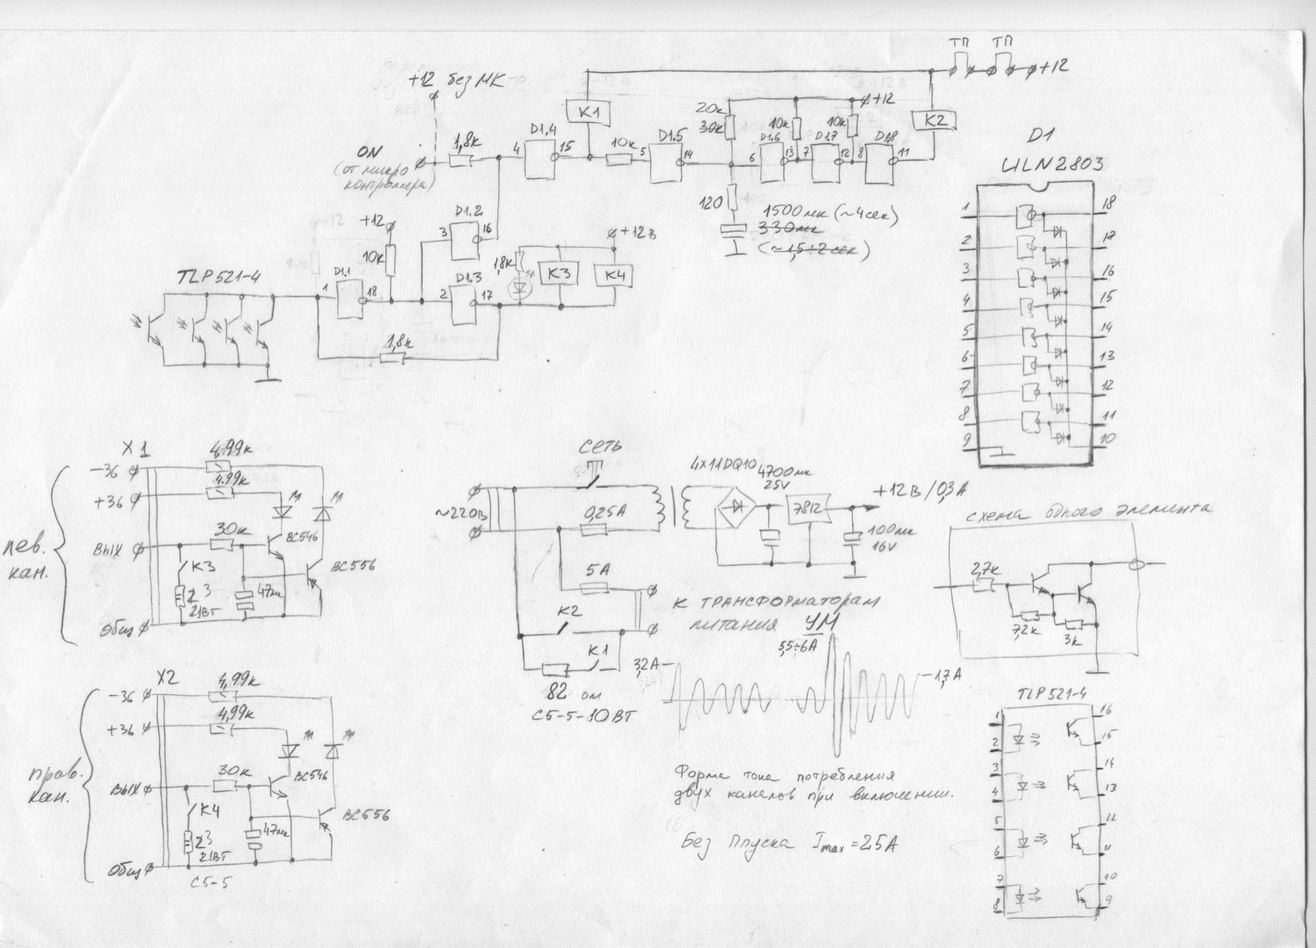 +12 без МК
ON
(от микро
контроллера)
1,8к
4
D1.4
15
К1
10к
5
D1.5
14
20к
30к
120
1500мк (~4сек)
330мк
(~1,5÷2сек)
6
D1.6
13
10к
7
D1.7
12
10к
+12
8
D1.8
11
К2
ТП
ТП
+12
+12
10к
3
D1.2
16
TLP521-4
1
D1.1
18
2
D1.3
17
1,8к
К3
К4
+12В
1,8к
D1
ULN2803
1
2
3
4
5
6
7
8
9
18
17
16
15
14
13
12
11
10
X1
-36
+36
Вых
Общ
лев.
кан.
4,99к
4.99к
30к
BC546
BC556
К3
21Вт
47мк
X2
-36
+36
Вых
Общ
прав.
кан.
4,99к
4,99к
30к
BC546
BC556
К4
21Вт
47мк
С5-5
сеть
~220В
0,25А
5А
К2
К1
82 ом
С5-5-10ВТ
4х11DQ10
4700мк
25V
7812
+12В/0,3А
100мк
16V
К ТРАНСФОРМАТОРАМ
питания УМ
5,5÷6А
3,2А
1,7А
Форма тока потребления
двух каналов при включении.
Без Ппуска Imax=25А
схема одного элемента
2,7к
7,2к
3к
TLP521-4
1
2
3
4
5
6
7
8
16
15
14
13
12
11
10
9